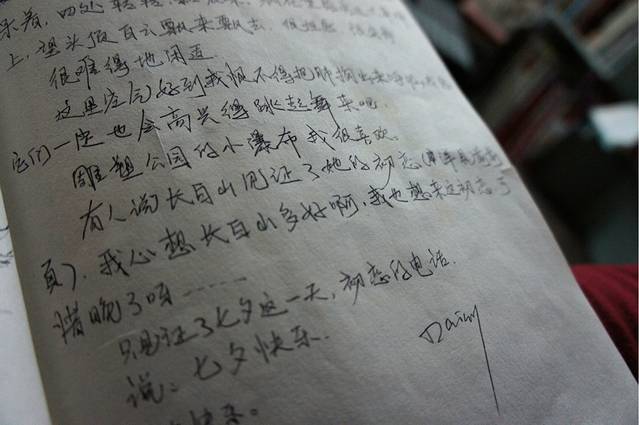 呆着，四处转转
上，埋头做白云飘来飘去，很惬意
很难得地闲适
这里空气好到我恨不得把肺掏出来
它们一定也会高兴得跳起舞来吧。
雕塑公园的小瀑布我很喜欢。
有人说长白山见证了她的初恋
页），我心想长白山多好啊，我也想来这初恋了
猜晚了呗……
只见证了七夕这一天，初恋的电话.
说：七夕快乐.
快乐。
Daisy